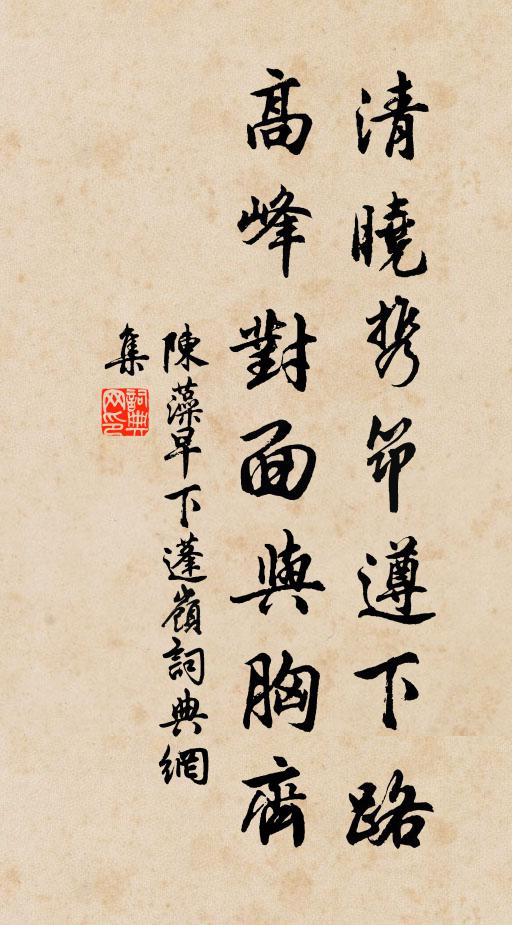 清曉携筇遵下路
高峰對面與胸齊
陳藻早下蓬嶺詞典網
集
詞典
网印